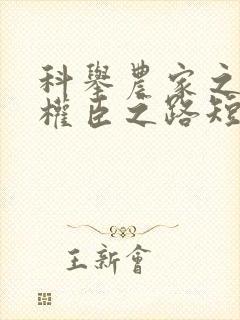 科舉農家之
權臣之路短
王新會